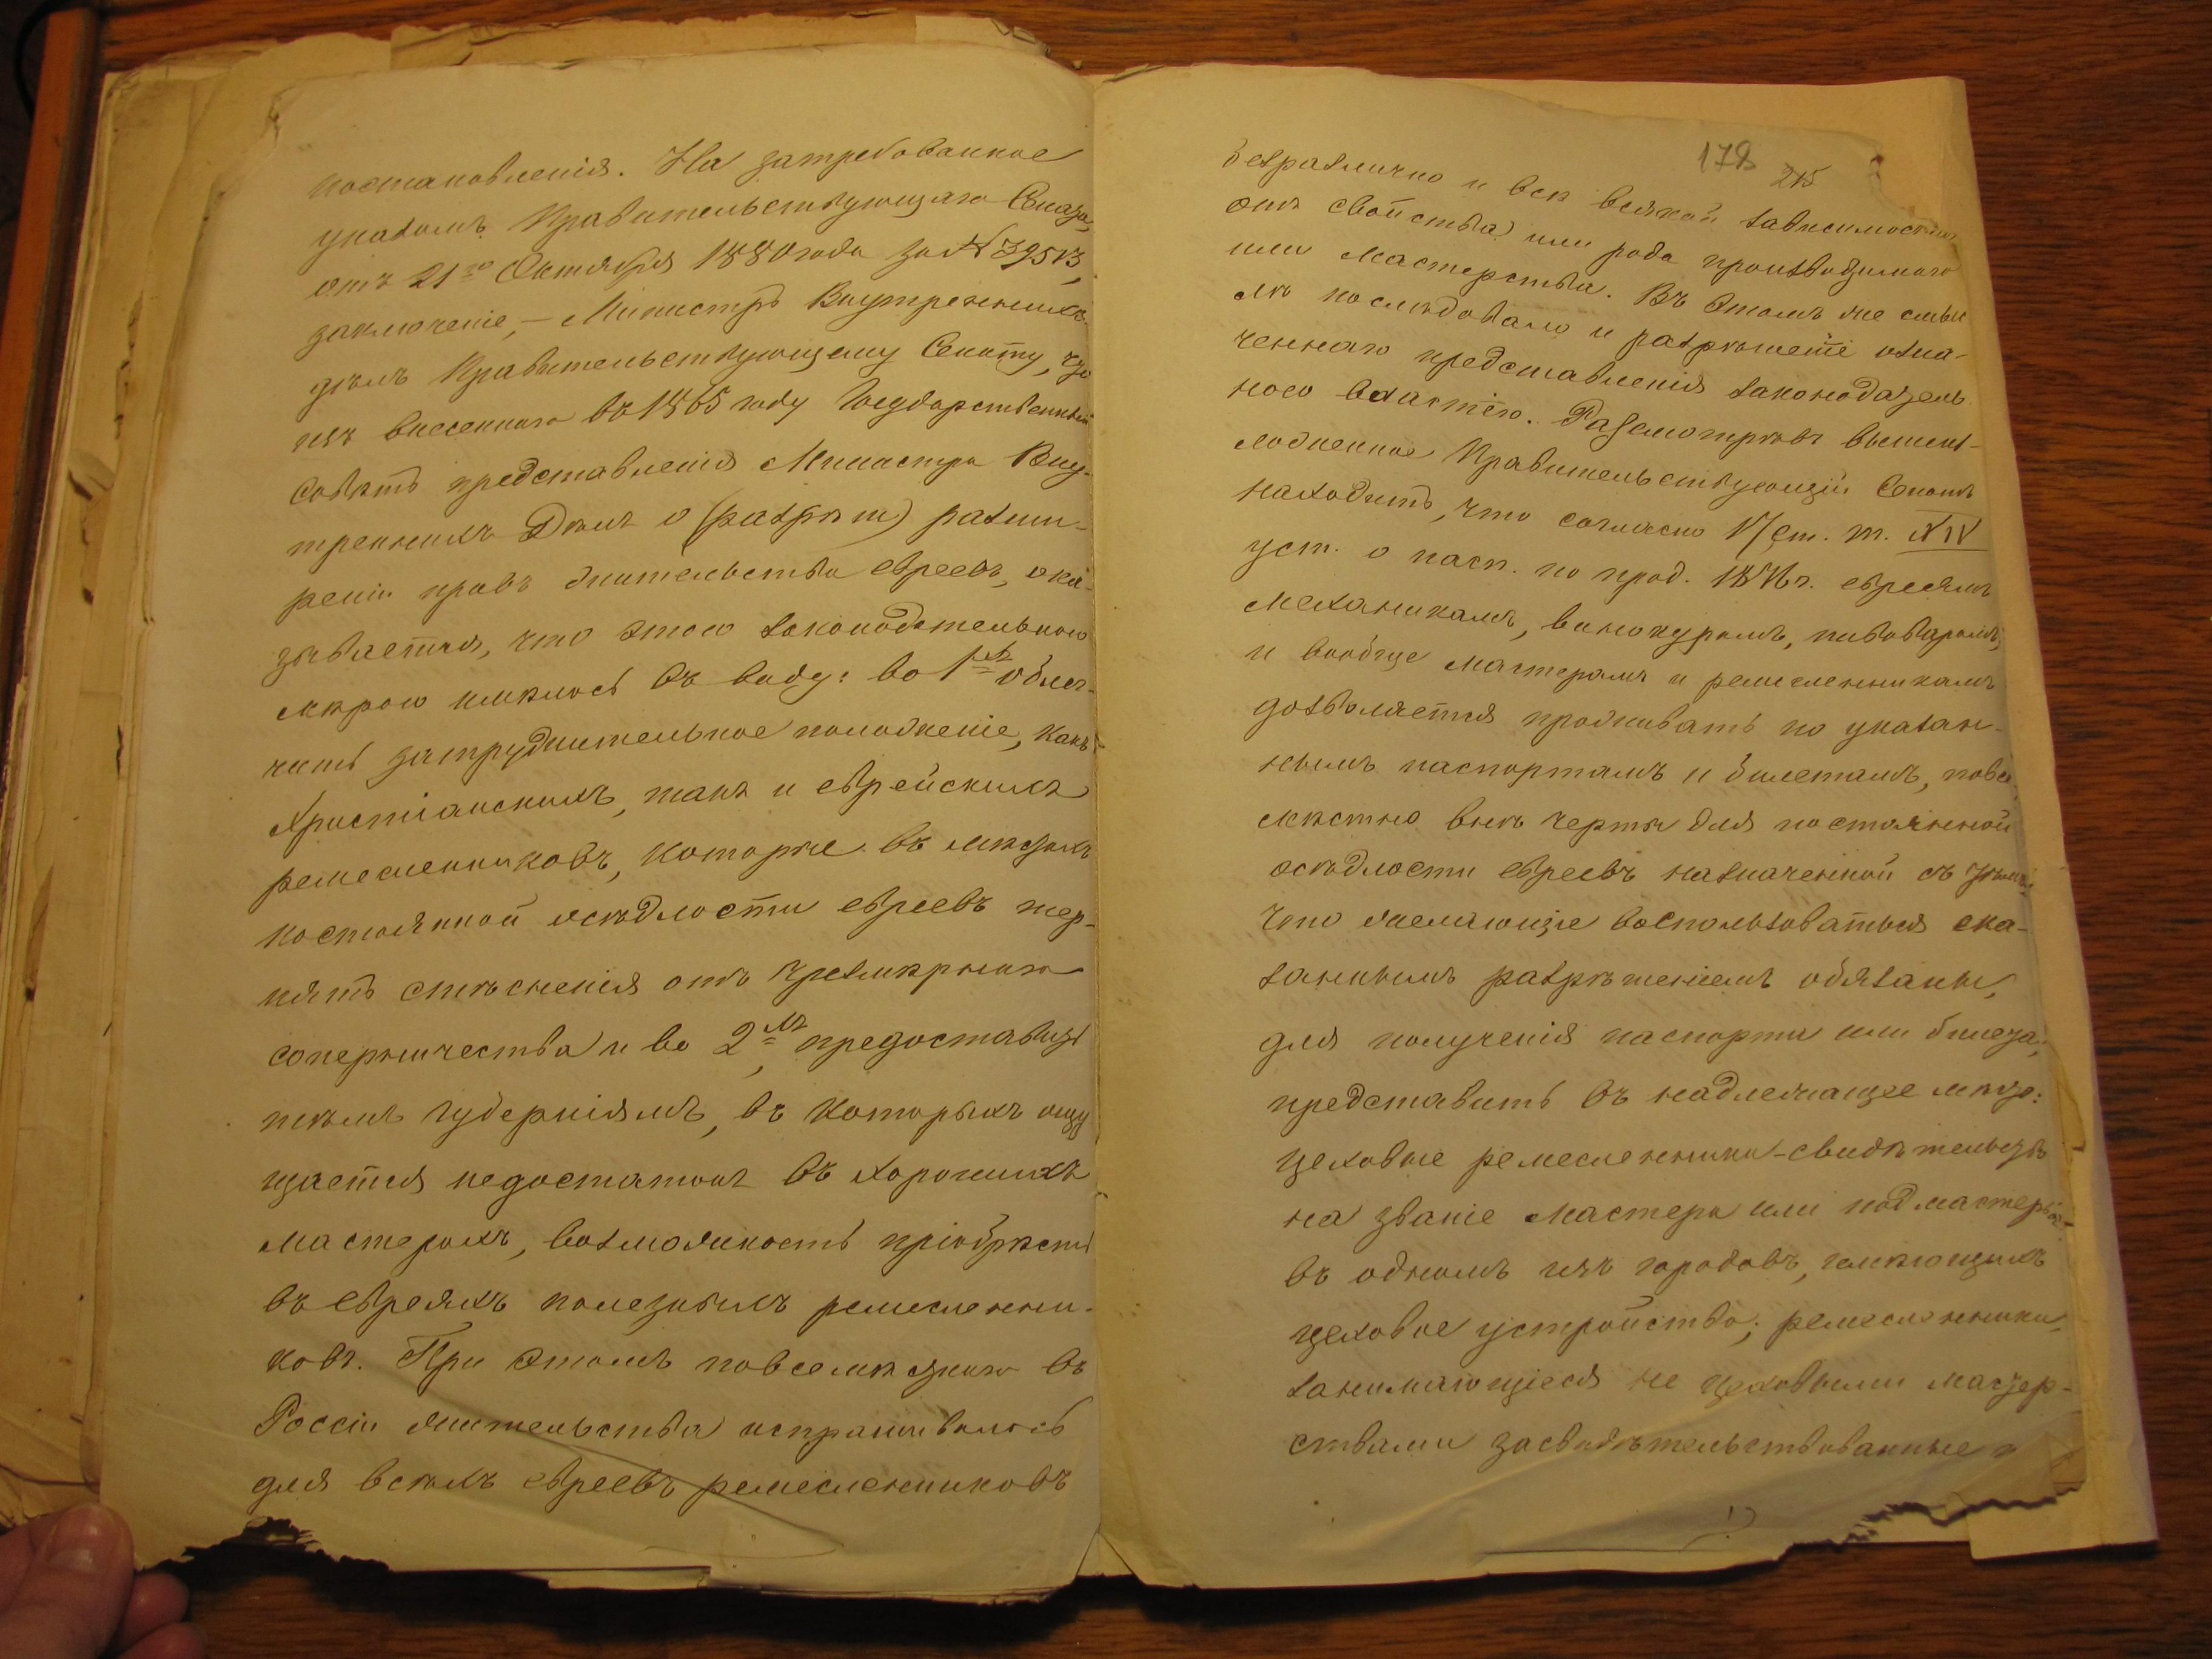 постановленія. На затребованное
указомъ Правительствующаго Сената,
отъ 21го Октября 1880 года за №
заключеніе, — Министръ Внутреннихъ
дѣлъ Правительствующему Сенату, что
изъ внесеннаго въ 1865 году Государственный
Совѣтъ представленія Министра Вну-
треннихъ Дѣлъ о (разрѣш) расши-
реніи правъ жительства евреевъ, ока-
зывается, что этою законодательною
мѣрою имѣлось въ виду: во 1хъ облег-
чить затруднительное положеніе, какъ
Христіанскихъ, такъ и еврейскихъ
ремесленниковъ, которые въ мѣстахъ
постоянной осѣдлости евреевъ тер-
пятъ стѣсненія отъ чрезмѣрнаго
соперничества и во 2хъ, предоставить
тѣмъ губерніямъ, въ которыхъ ощу
щается недостатокъ въ хорошихъ
мастерахъ, возможность пріобрѣсть
въ евреяхъ полезныхъ ремесленни-
ковъ. При этомъ повсемѣстнаго въ
Россіи жительства испрашивалось
для всѣхъ евреевъ ремесленниковъ
178 215
безразлично и внѣ всякой зависимости
отъ свойства или рода производимаго
ими мастерства. Въ этомъ же смыс
лѣ послѣдовало и разрѣшеніе озна-
ченнаго представленія законодатель
ною властію. Разсмотрѣвъ вышеиз-
ложенное Правительствующій Сенатъ
находитъ, что согласно 17 ст. т. XIV
уст. о пасп. по прод. 1876 г. евреямъ
механикамъ, винокурамъ, пивоварамъ,
и вообще мастерамъ и ремесленникамъ
дозволяется проживать по указан-
нымъ паспортамъ и билетамъ, повсе-
мѣстно внѣ черты для постоянной
осѣдлости евреевъ назначенной съ тѣмъ,
что желающіе воспользоваться ска-
заннымъ разрѣшеніемъ обязаны,
для полученія паспорта или билета,
представить въ надлежащее мѣсто:
цеховые ремесленники - свидѣтельства
на званіе мастера или подмастерья
въ одномъ изъ городовъ, имѣющихъ
цеховое устройство; ремесленники,
занимающіеся не цеховыми мастер-
ствами засвидѣтельствованные